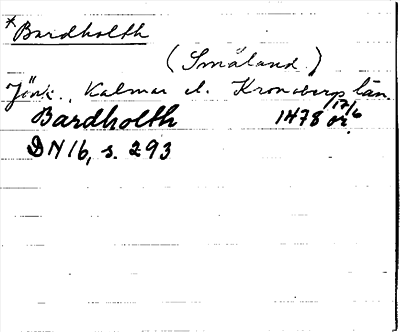 *Bardholth
(Småland)
Jönk., Kalmar el. Kronobergs län.
Bardholth 1478 17/6 or.
DN 16, s. 293